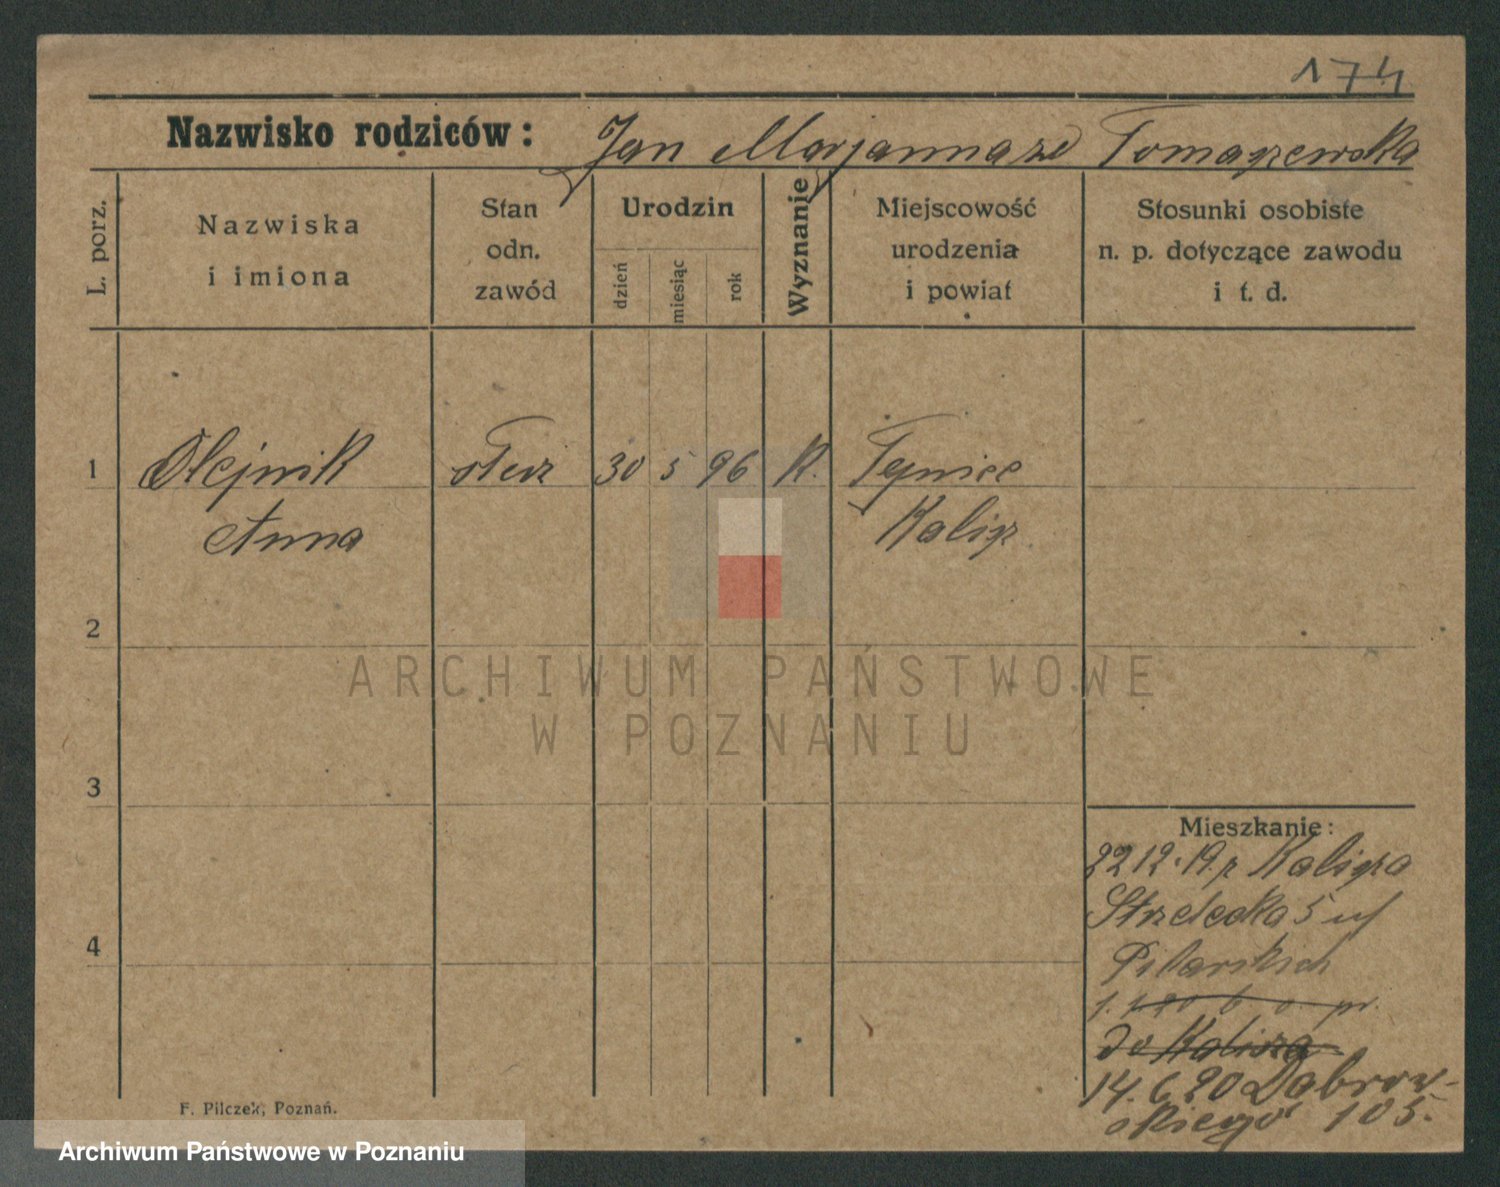 174
Nazwisko rodziców: Jan Marjanna ze Tomaszewska
L. porz.
Nazwiska
i imiona
Stan
odn.
zawód
Urodzin
dzień
miesiąc
rok
Wyznanie
Miejscowość
urodzenia
i powiat
Stosunki osobiste
n. p. dotyczące zawodu
i t. d.
1 Olejnik 30 5 96 K. Tyniec
Anna Kalisz
2
ARCHIWUM PAŃSTWOWE
W POZNANIU
3
Mieszkanie:
22 12. 19. z Kalisza
Strzelecka 5 u
Pilarskich
4
do Kalisza
14. 6 20 Dabrow-
skiego 105.
F. Pilczek, Poznań.
Archiwum Państwowe w Poznaniu